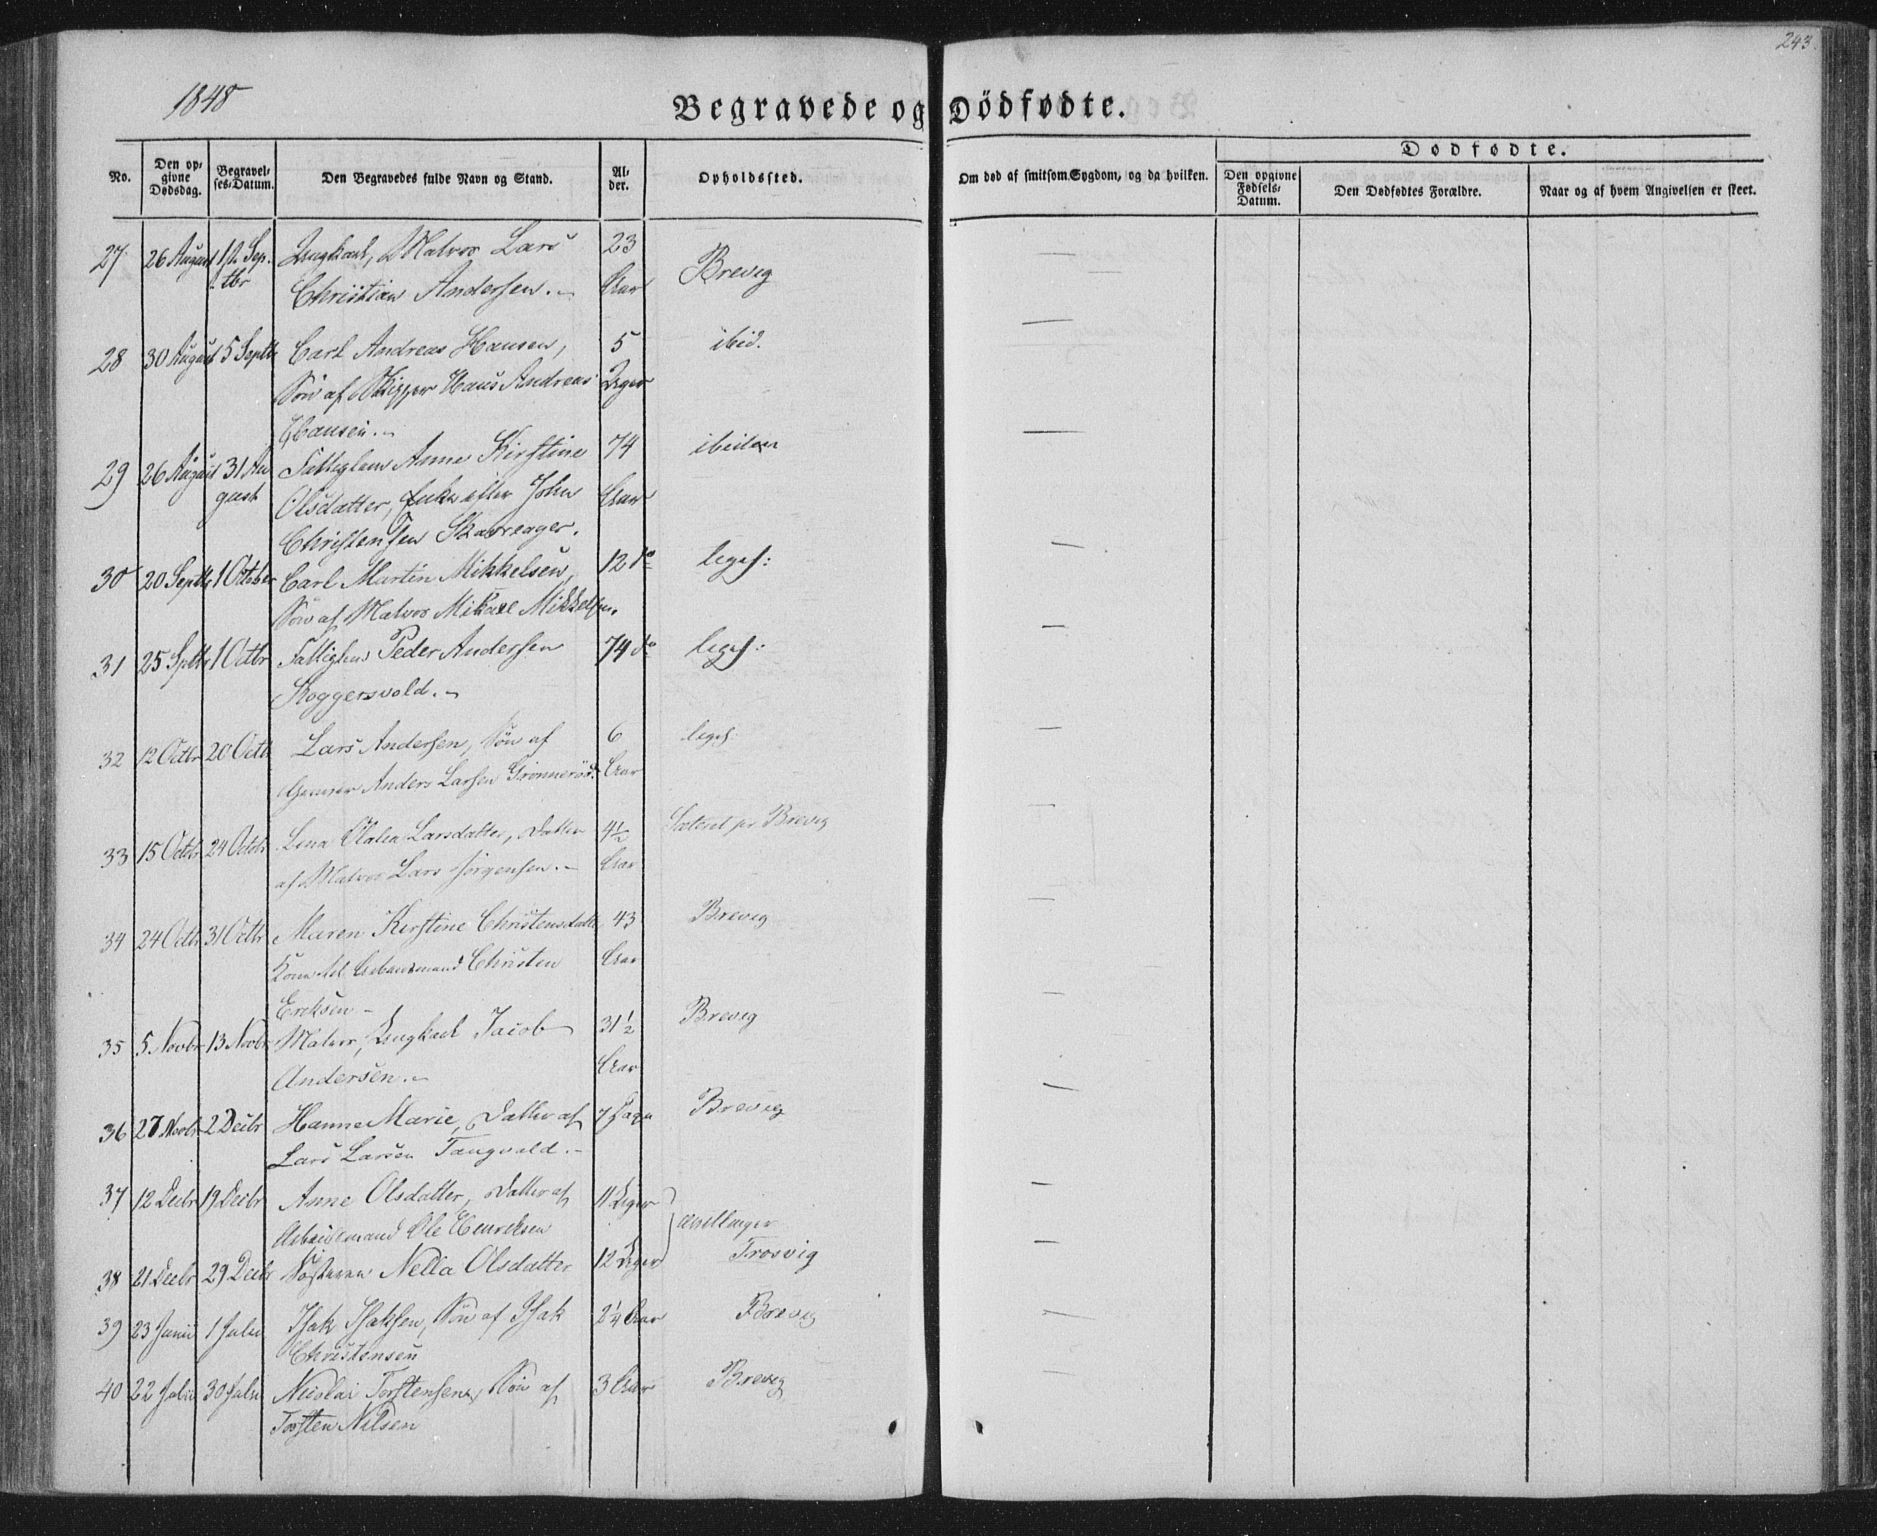 243.
1848
Begravede og Dödfødte.
No.
Den opgivne Dødsdag.
Begravelses-Datum.
Den Begravedes fulde Navn og Stand.
Alder.
Opholdssted.
Om død af smitsom Sygdom, og da hvilken.
Dødfødte.
Den opgivne Fødsels-Datum.
Den Dødfødtes Forældre.
Naar og af hvem Angivelsen er skeet.
27 26 August 1ste Sep. Ungkarl, Matros Lars 23 Brevig —
tbr Christian Andersen. Aar
28 30 August 5 Septbr Carl Andreas Hansen, 5 ibid. —
Søn af Skipper Hans Andreas Uger
Hansen.
29 26 August 31 Au Fattiglem Anne Kirstine 74 ibidem —
gust Olsdatter, Enke efter John Aar
Christensen Skavreager.
30 20 Septbr 1 October Carl Martin Mikkelsen, 12 do leges: —
Søn af Matros Mikael Mikkelsen.
31 25 Sptbr 1 Octbr Fattiglem Peder Andersen 74 do leges: —
Skoggersvold.
32 12 Octbr 20 Octb Lars Andersen, Søn af 6 leges —
Anders Larsen Grønnerød. Aar
33 15 Octbr 24 Octbr Lina Olalia Larsdatter, Datter 4½ Sæteret pr Brevig —
af Matros Lars Jørgensen. Aar
34 24 Octbr 31 Octbr Maren Kirstine Christensdatter 43 Brevig —
Kone til Arbeidsmand Christen Aar
Eriksen
35 5 Novbr 13 Novbr Matros, Ungkarl Jacob 31½ Brevig —
Andersen. Aar
36 27 Novbr 2 Decbr Hanne Marie, Datter af 7 Dage Brevig —
Lars Larsen Tangvald.
37 12 Decbr 19 Decbr Anne Olsdatter, Datter af 11 Uger —
Arbeidsmand Ole Henriksen
Tvillinger
38 21 Decbr 29 Decbr Søsteren Nella Olsdatter 12 Uger Trosvig —
39 23 Junii 1 Julii Isak Isaksen, Søn af Isak 2¼ Aar Brevig —
Christensen
40 22 Julii 30 Julii Nicolai Torstensen, Søn af 3 Aar Brevig —
Torsten Nilsen